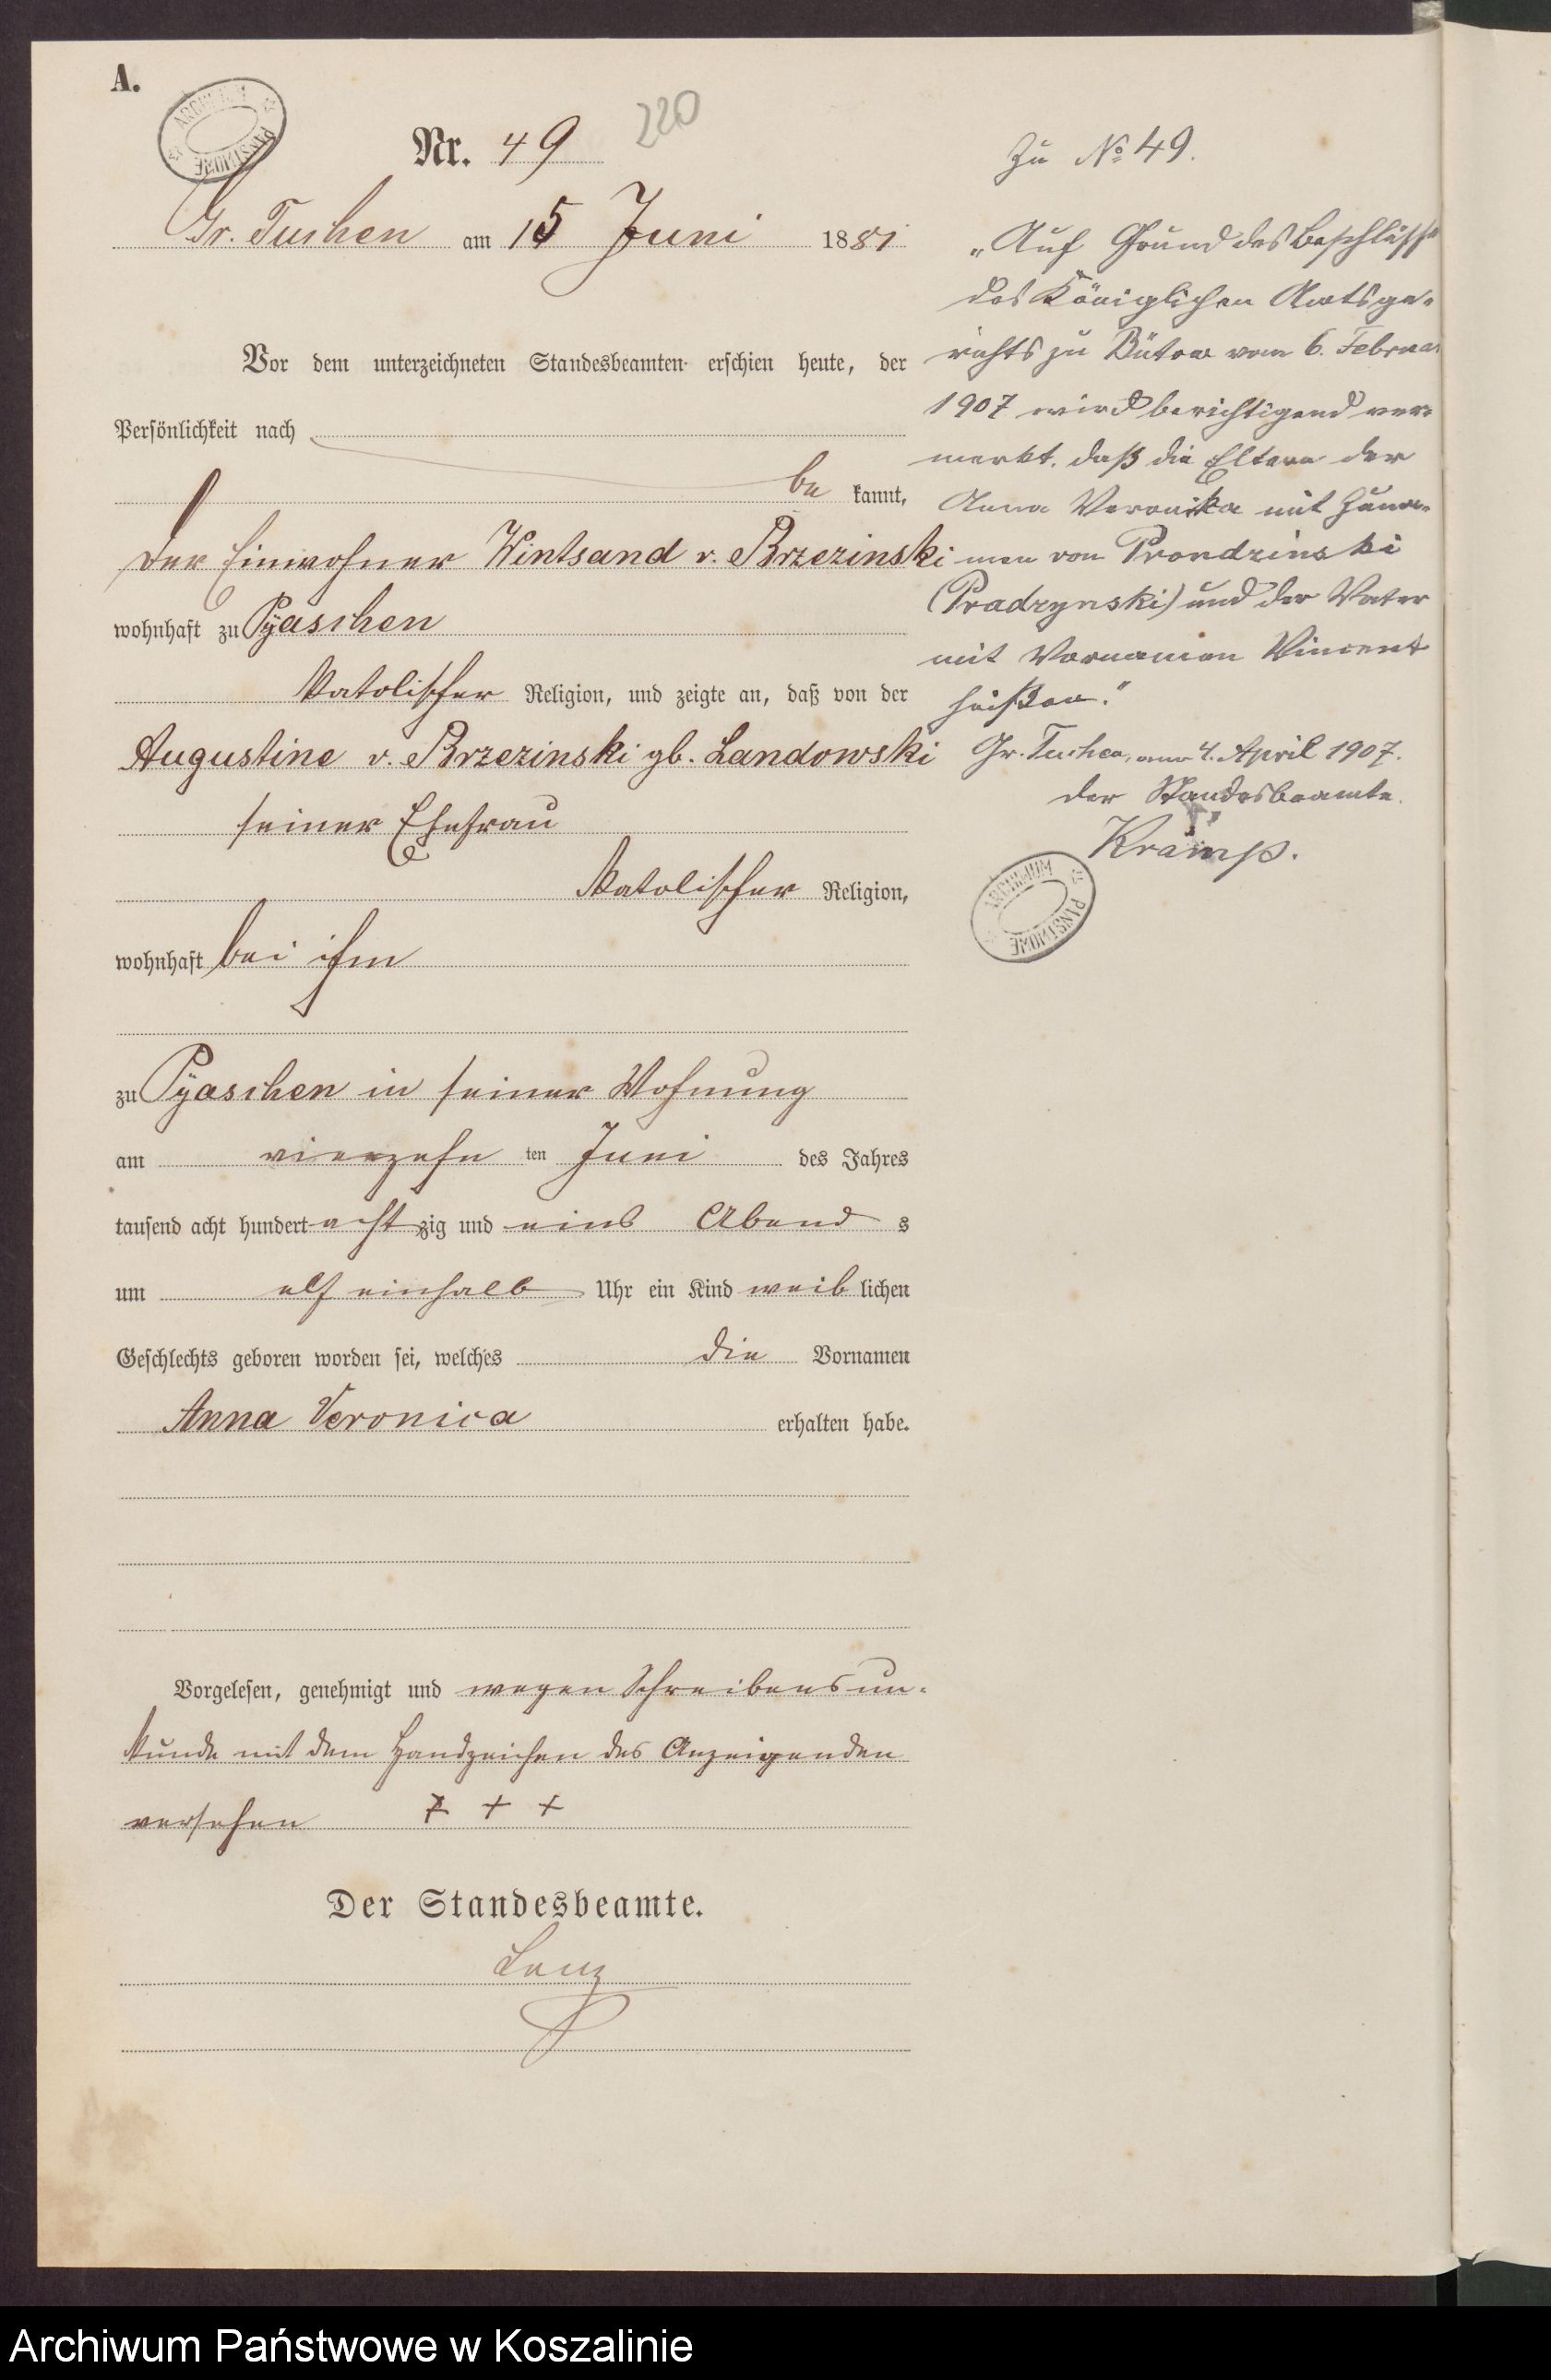 A.
ARCHIWUM PAŃSTWOWE
Nr. 49
220
Gr. Tuchen am 15 Juni 1881
Vor dem unterzeichneten Standesbeamten erschien heute, der
Persönlichkeit nach
be kannt,
der Einwohner Wintsand v. Brzezinski
wohnhaft zu Pyaschen
katolischer Religion, und zeigte an, daß von der
Augustine v. Brzezinski gb. Landowski
seiner Ehefrau
katolischer Religion,
wohnhaft bei ihm
zu Pyaschen in seiner Wohnung
am vierzehn ten Juni des Jahres
tausend acht hundert acht zig und eins Abend s
um elf einhalb Uhr ein Kind weib lichen
Geschlechts geboren worden sei, welches die Vornamen
Anna Veronica erhalten habe.
Vorgelesen, genehmigt und wegen Schreibensun-
kunde mit dem Handzeichen des Anzeigenden
versehen + + +
Der Standesbeamte.
Lenz
Zu No 49.
„Auf Grund des Beschlusses
des Königlichen Amtsge-
richts zu Bütow vom 6. Februar
1907 wird berichtigend ver-
merkt, daß die Eltern der
Anna Veronika mit Zuna-
men von Prondzinski
(Pradzynski) und der Vater
mit Vornamen Vincent
heißen."
Gr. Tuchen, am 4. April 1907.
Der Standesbeamte.
Kramp.
ARCHIWUM PAŃSTWOWE
Archiwum Państwowe w Koszalinie